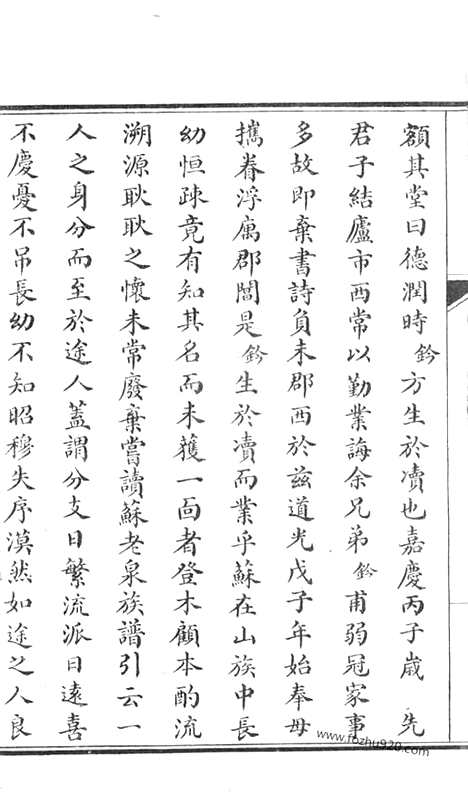 額其堂曰德潤時鈐方生於凟也嘉慶丙子歲　先
君子結廬市西常以勤業誨余兄弟鈐甫弱冠家事
多故即棄書詩負耒郡西於兹道光戊子年始奉母
攜眷浮寓郡閶是鈐生於凟而業乎蘇在山族中長
幼恒疎竟有知其名而未獲一面者登木顧本酌流
溯源耿耿之懷未常廢棄嘗讀蘇老泉族譜引云一
人之身分而至於途人蓋謂分支日繁流派日遠喜
不慶憂不吊長幼不知昭穆失序漠然如途之人良
www.fozhu920.com